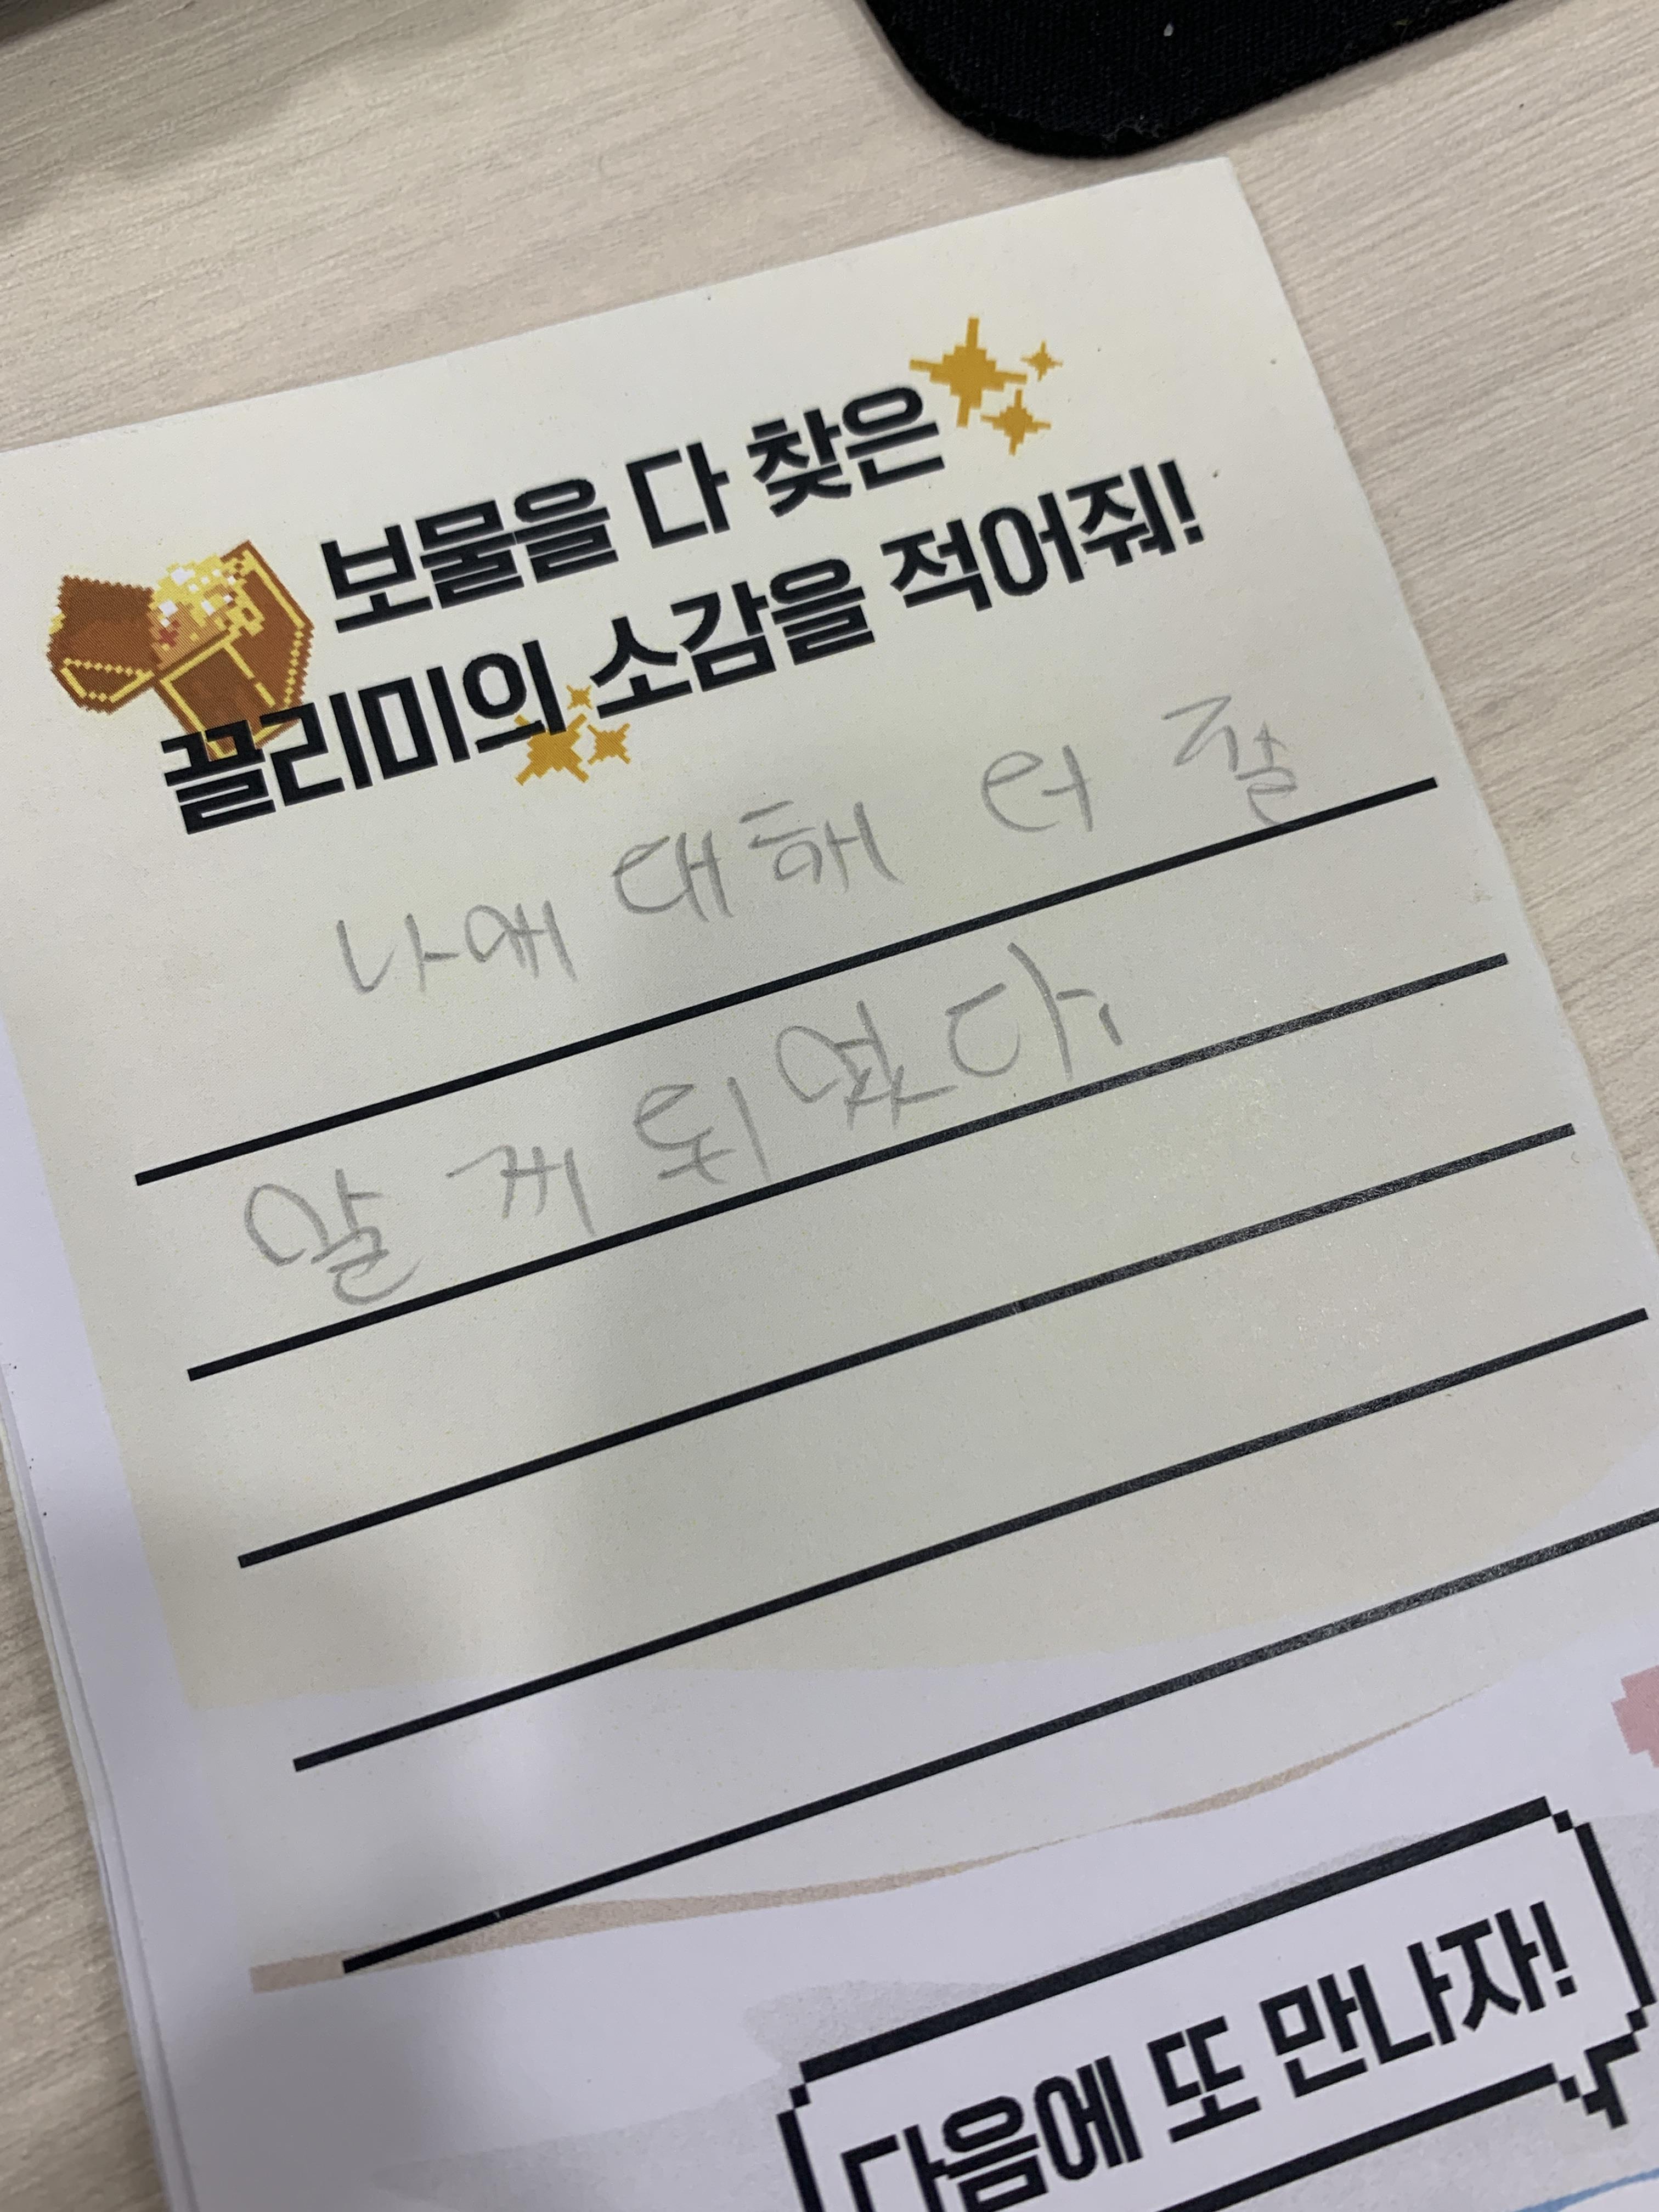 보물을 다 찾은
끌리미의 소감을 적어줘!
나에 대해 더 잘
알 게 되었다!
다음에 또 만나자!